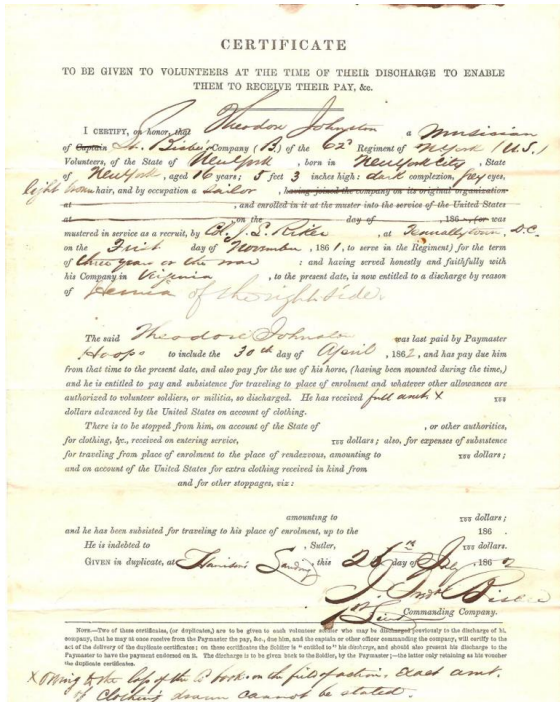 CERTIFICATE
TO BE GIVEN TO VOLUNTEERS AT THE TIME OF THEIR DISCHARGE TO ENABLE
THEM TO RECEIVE THEIR PAY, &c.
I CERTIFY, on honor, that Theodore Johnston a Musician
of Captain Company (B.) of the 62d Regiment of (U.S.)
Volunteers, of the State of New York, born in New York City, State
of New York, aged 16 years; 5 feet 3 inches high: dark complexion, grey eyes,
light brown hair, and by occupation a sailor, having joined the company on its original organization
at , and enrolled in it at the muster into the service of the United States
at on the day of , 186 , (or was
mustered in service as a recruit, by J. L. Riker, at Tennallytown, D.C.
on the First day of November, 1861, to serve in the Regiment) for the term
of three years or the war : and having served honestly and faithfully with
his Company in Virginia , to the present date, is now entitled to a discharge by reason
of Hernia of the right side.
The said Theodore Johnston was last paid by Paymaster
Hoops to include the 30th day of April, 1862, and has pay due him
from that time to the present date, and also pay for the use of his horse, (having been mounted during the time,)
and he is entitled to pay and subsistence for traveling to place of enrolment and whatever other allowances are
authorized to volunteer soldiers, or militia, so discharged. He has received full amt X
dollars advanced by the United States on account of clothing.
There is to be stopped from him, on account of the State of , or other authorities,
for clothing, &c., received on entering service, dollars; also, for expenses of subsistence
for traveling from place of enrolment to the place of rendezvous, amounting to dollars;
and on account of the United States for extra clothing received in kind from
and for other stoppages, viz:
amounting to dollars;
and he has been subsisted for traveling to his place of enrolment, up to the 186 .
He is indebted to , Sutler, dollars.
GIVEN in duplicate, at Harrison's Landing, this 26th day of July, 1862
Commanding Company.
NOTE.—Two of these certificates, (or duplicates,) are to be given to each volunteer soldier who may be discharged previously to the discharge of his
company, that he may at once receive from the Paymaster the pay, &c., due him, and the captain or other officer commanding the company, will certify to the
act of the delivery of the duplicate certificates; on these certificates the Soldier is "entitled to" his discharge, and should also present his discharge to the
Paymaster to have the payment endorsed on it. The discharge is to be given back to the Soldier, by the Paymaster;—the latter only retaining as his voucher
the duplicate certificates.
X Owing to the loss of the Co books on the field of action, exact amt.
of clothing drawn cannot be stated.